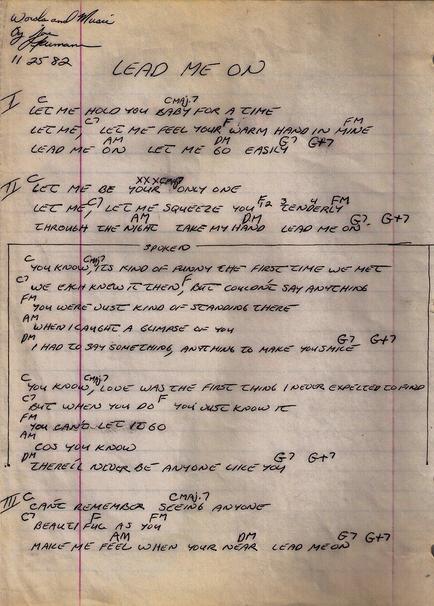 Words and Music
By Joe
11 25 82
LEAD ME ON
I
C CMAJ.7
LET ME HOLD YOU BABY FOR A TIME
C7 F FM
LET ME, LET ME FEEL YOUR WARM HAND IN MINE
AM DM G7 G+7
LEAD ME ON LET ME GO EASILY
II
C XXXCMAJ7
LET ME BE YOUR ONLY ONE
C7 F 12 3 4 FM
LET ME, LET ME SQUEEZE YOU TENDERLY
AM DM G7 G+7
THROUGH THE NIGHT TAKE MY HAND LEAD ME ON
SPOKEN
C CMAJ7
YOU KNOW, ITS KIND OF FUNNY THE FIRST TIME WE MET
C7 F
WE EACH KNEW IT THEN, BUT COULDN'T SAY ANYTHING
FM
YOU WERE JUST KIND OF STANDING THERE
AM
WHEN I CAUGHT A GLIMPSE OF YOU
DM G7 G+7
I HAD TO SAY SOMETHING, ANYTHING TO MAKE YOU SMILE
C CMAJ7
YOU KNOW, LOVE WAS THE FIRST THING I NEVER EXPECTED TO FIND
C7 F
BUT WHEN YOU DO YOU JUST KNOW IT
FM
YOU CAN'T LET IT GO
AM
COS YOU KNOW
DM G7 G+7
THERE'LL NEVER BE ANYONE LIKE YOU
III
C CMAJ.7
CAN'T REMEMBER SEEING ANYONE
C7 F FM
BEAUTIFUL AS YOU
AM DM G7 G+7
MAKE ME FEEL WHEN YOUR NEAR LEAD ME ON